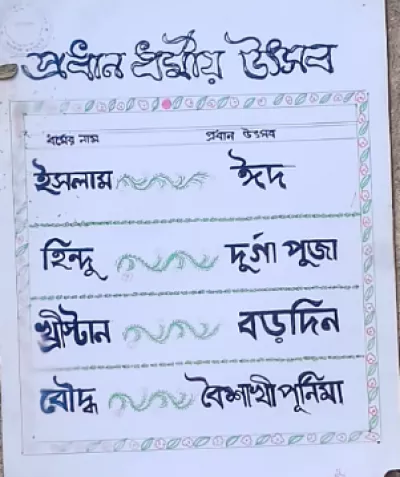 প্রধান ধর্মীয় উৎসব
ধর্মের নাম প্রধান উৎসব
ইসলাম ঈদ
হিন্দু দুর্গা পূজা
খ্রীস্টান বড়দিন
বৌদ্ধ বৈশাখী পূর্নিমা